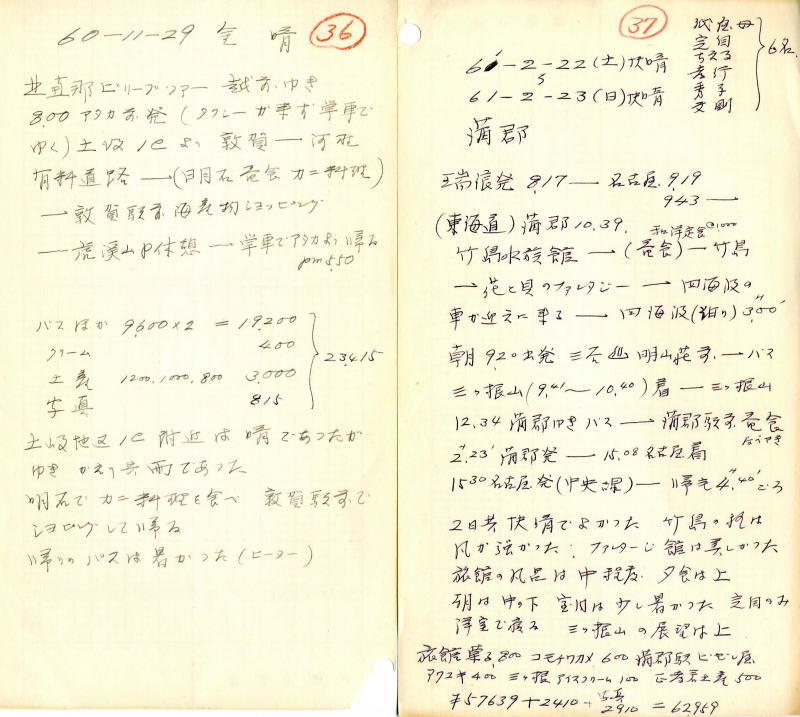 36
60-11-29 金 晴
8.00 アタカ前発 (タクシーが来ず 学車で
ゆく) 土岐 IC より 敦賀 ー
有料道路 ー (昼食 カニ料理)
ー 敦賀駅前海産物ショッピング
ー 虎渓山P休憩 ー 学車でアタカより帰る
pm5.50
バスほか 9,600×2 = 19,200
クリーム 400
土産 1200.1000.800 3,000
写真 815
23415
土岐地区 IC 附近は 晴であったが
ゆき かえり共雨であった
カニ料理を食べ 敦賀駅前で
ショピングして帰る
帰りのバスは暑かった (ヒーター)
37
61-2-22 (土) 快晴
61-2-23 (日) 快晴
6名
蒲郡
瑞浪発 8.17 ー 名古屋 9.19
943 ー
(東海道) 蒲郡 10.39.
和洋定食 @1,000
竹島水族館 ー (昼食) ー 竹島
ー 花と貝のファンタジー ー 四海波の
車が迎えに来る ー 四海波(泊り) 3.00
朝 9.20 出発 三谷 明山荘前 ー バス
三ヶ根山 (9.41〜10.40) 着 ー 三ヶ根山
12.34 蒲郡ゆきバス ー 蒲郡駅前 昼食
2.23 蒲郡発 ー 15.08 名古屋着
1530 名古屋発 (中央線) ー 帰宅 4.40 ごろ
2日共快晴でよかった 竹島の
風が強かった. ファンタージ館は美しかった
旅館の風呂は中程度 夕食は上
朝は中の下 室内は少し暑かった 定目のみ
洋室で寝る 三ヶ根山の展望は上
旅館 菓子 800 コモチワカメ 600 蒲郡駅
400 三ヶ根 アイスクリーム 100 土産 500
¥57639+2410+写真2910 = 62959